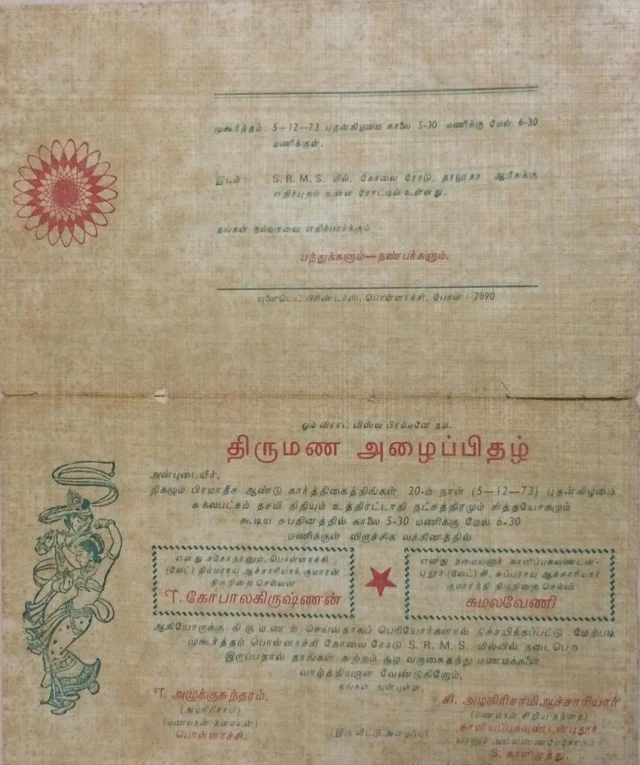 முகூர்த்தம் : 5-12-73 புதன்கிழமை காலை 5-30 மணிக்கு மேல் 6-30
மணிக்குள்.
இடம் : S. R. M. S. மில், கோவை ரோடு, தாலூகா ஆபீசுக்கு
எதிர்புறம் உள்ள ரோட்டில் உள்ளது.
தங்கள் நல்வரவை எதிர்பார்க்கும்
பந்துக்களும்—நண்பர்களும்.
யுனைடெட் பிரிண்டர்ஸ், பொள்ளாச்சி, போன் : 2890
ஓம் விராட் விஸ்வ பிரம்மனே நம
திருமண அழைப்பிதழ்
அன்புடையீர்,
நிகழும் பிரமாதீச ஆண்டு கார்த்திகைத்திங்கள் 20-ம் நாள் (5-12-73) புதன்கிழமை
சுக்லபட்சம் தசமி திதியும் உத்திரட்டாதி நட்சத்திரமும் சித்தயோகமும்
கூடிய சுபதினத்தில் காலை 5-30 மணிக்கு மேல் 6-30
மணிக்குள் விருச்சிக லக்கினத்தில்
எனது சகோதரனும், பொள்ளாச்சி,
(லேட்) திம்மராய ஆச்சாரியார் குமாரன்
திருநிறை செல்வன்
T. கோபாலகிருஷ்ணன்
எனது தமையனார் காளியப்பகவுண்டன்-
புதூர் (லேட்) சி. சுப்பராய ஆச்சாரியார்
குமாரத்தி திருநிறை செல்வி
கமலவேணி
ஆகியோருக்கு திருமணம் செய்வதாகப் பெரியோர்களால் நிச்சயிக்கப்பட்டு மேற்படி
முகூர்த்தம் பொள்ளாச்சி கோவை ரோடு S. R. M. S. மில்லில் நடைபெற
இருப்பதால் தாங்கள் சுற்றம் சூழ வருகைதந்து மணமக்களை
வாழ்த்தியருள வேண்டுகிறேம்.
தங்கள் அன்புள்ள,
T. அழுக்குசுந்தரம்,
(அழகிரிசாமி)
(மணமகன் தமையன்)
பொள்ளாச்சி.
(இரு வீட்டு அழைப்பு)
சி. அழகிரிசாமி ஆச்சாரியார்
(மணமகள் சிறிய தந்தை)
காளியப்பகவுண்டன்புதூர்
S. காளிமுத்து.